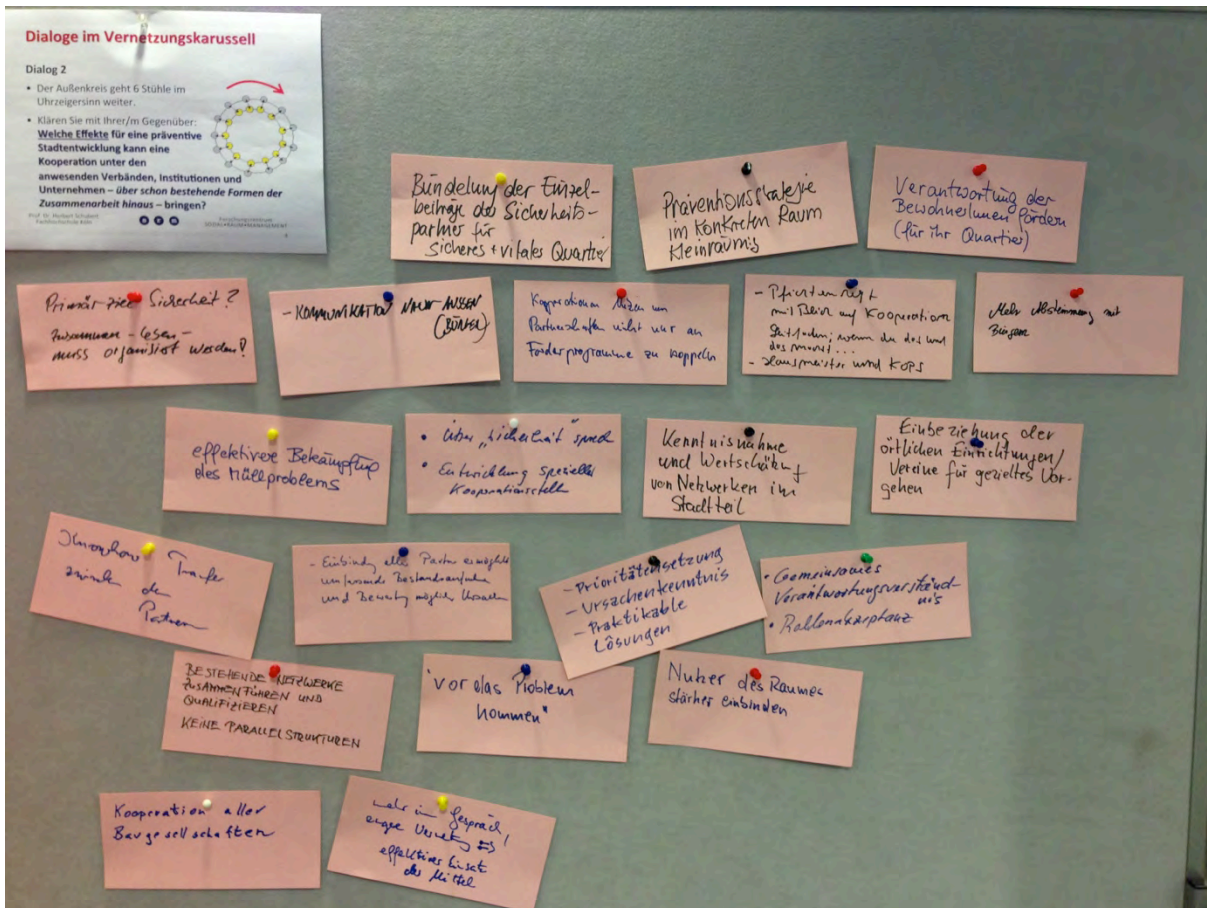 Dialoge im Vernetzungskarussell
Dialog 2
• Der Außenkreis geht 6 Stühle im
Uhrzeigersinn weiter.
• Klären Sie mit Ihrer/m Gegenüber:
Welche Effekte für eine präventive
Stadtentwicklung kann eine
Kooperation unter den
anwesenden Verbänden, Institutionen und
Unternehmen – über schon bestehende Formen der
Zusammenarbeit hinaus – bringen?
Prof. Dr. Herbert Schubert
Fachhochschule Köln
Forschungsschwerpunkt
SOZIAL•RAUM•MANAGEMENT
Bündelung der Einzel-
beiträge der Sicherheits-
partner für
Sicheres + vitales Quartier
Präventionsstrategie
im konkreten Raum
kleinräumig
Verantwortung der
BewohnerInnen fördern
(für ihr Quartier)
Primärziel Sicherheit?
zusammen-leben-
muss organisiert werden?
- KOMMUNIKATION NACH AUSSEN
(BÜRGER)
Kooperationen
Partnerschaften nicht nur an
Förderprogramme zu koppeln
mit Blick auf Kooperation
Leitfaden; wenn du das und
das machst...
- Hausmeister und KOPS
Mehr Abstimmung mit
Bürgern
effektivere Bekämpfung
des Müllproblems
• Über „Sicherheit“
• Entwicklung spezieller
Kooperationsstellen
Kenntnisnahme
und Wertschätzung
von Netzwerken im
Stadtteil
Einbeziehung der
örtlichen Einrichtungen/
Vereine für gezieltes Vor-
gehen
Knowhow Transfer
zwischen den
Partnern
- Einbindung aller Partner ermöglicht
umfassende Bestandsaufnahme
und Bewertung möglicher Ursachen
- Prioritätensetzung
- Ursachenkenntnis
- Praktikable
Lösungen
• Gemeinsames
Verantwortungsverständ-
nis
• Rollenakzeptanz
BESTEHENDE NETZWERKE
ZUSAMMENFÜHREN UND
QUALIFIZIEREN
KEINE PARALLELSTRUKTUREN
"vor das Problem
kommen"
Nutzer des Raumes
stärker einbinden
Kooperation aller
Baugesellschaften
mehr im Gespräch,
enge Vernetzung =>
effektiver Einsatz
der Mittel